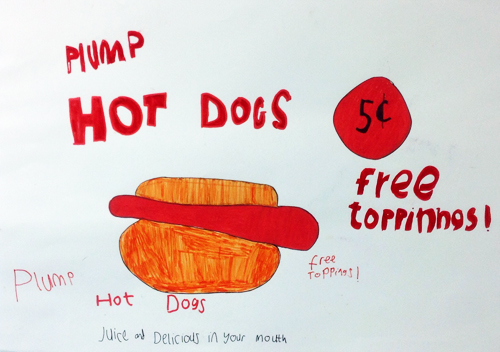 PLUMP
HOT DOGS
5¢
free
toppinngs!
free
toppings!
Plump
Hot Dogs
Juice and Delicious in your mouth